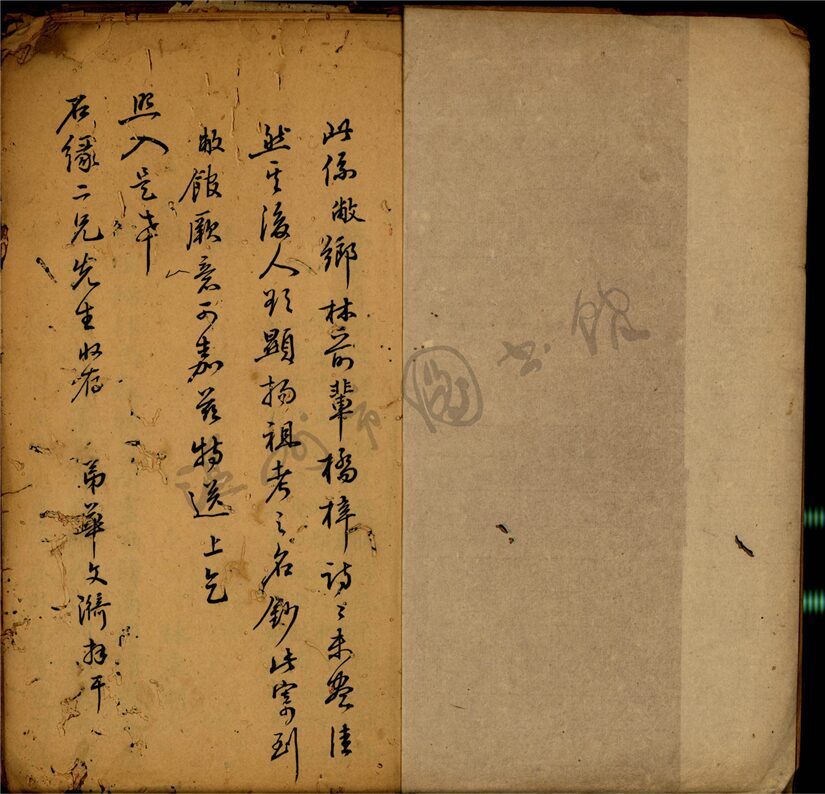 此係敝鄉林前輩橋梓詩、詩未盡佳
然其後人欲顯揚祖考之名鈔此寄到
敝館厥意可嘉茲特送上乞
照入是幸
石緣二兄先生收存
弟華文漪拜干
圖書館